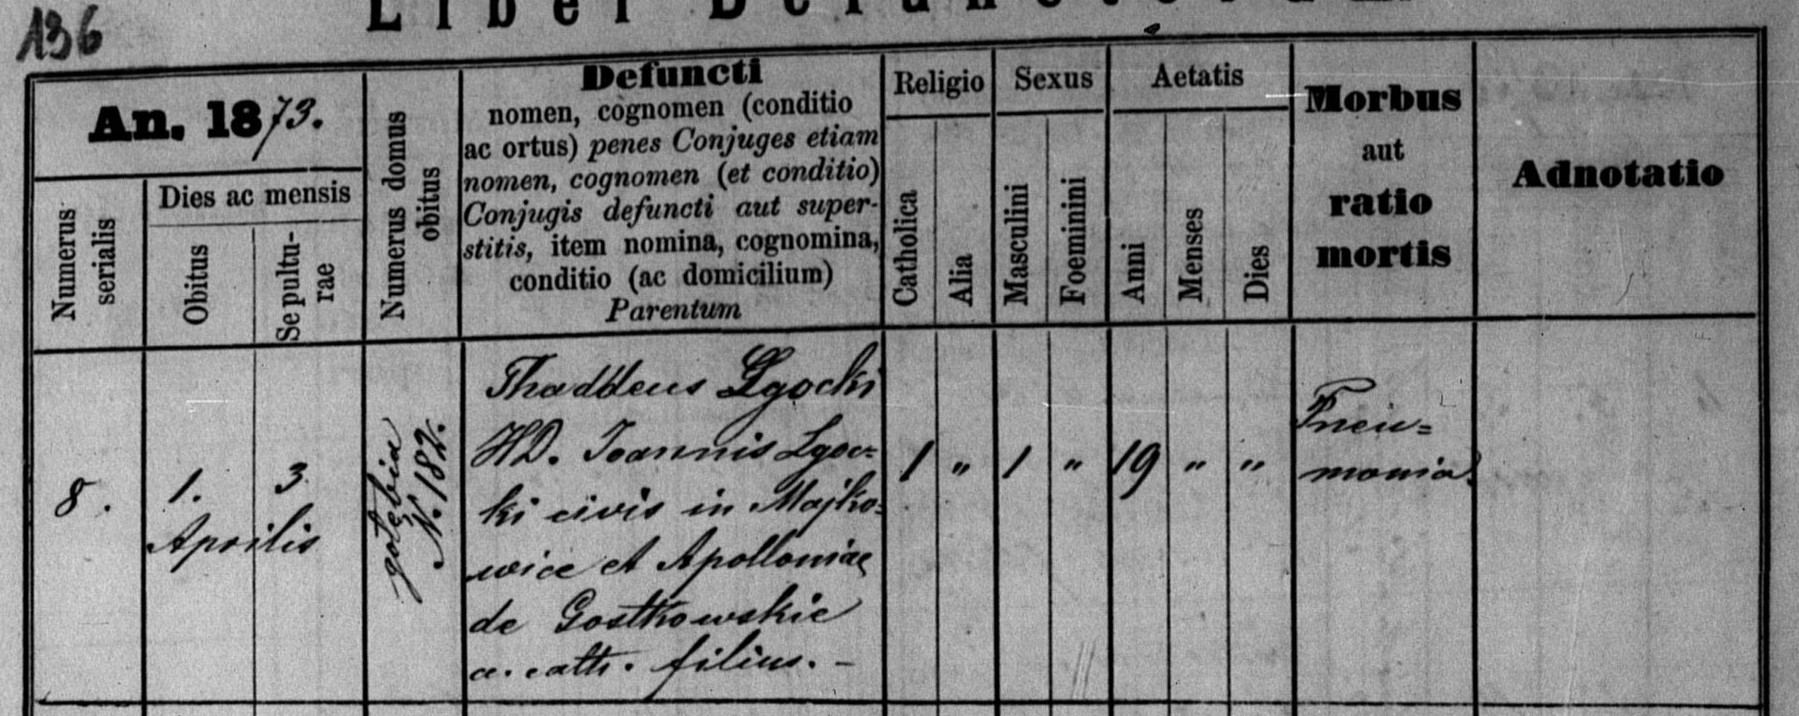 136
Liber Defunctorum
An. 1873.
Numerus serialis
Dies ac mensis
Obitus
Sepultu-
rae
Numerus domus
obitus
Defuncti
nomen, cognomen (conditio
ac ortus) penes Conjuges etiam
nomen, cognomen (et conditio)
Conjugis defuncti aut super-
stitis, item nomina, cognomina,
conditio (ac domicilium)
Parentum
Religio
Catholica
Alia
Sexus
Masculini
Foeminini
Aetatis
Anni
Menses
Dies
Morbus
aut
ratio
mortis
Adnotatio
8.
1. 3
Aprilis
gołębia
N. 182.
Thaddeus Lgocki
HD. Joannis Lgoc=
ki civis in Majko=
wice et Apolloniae
de Gostkowskie
a. cath. filius. –
1 „ 1 „ 19 „ „
Pneu=
monia.